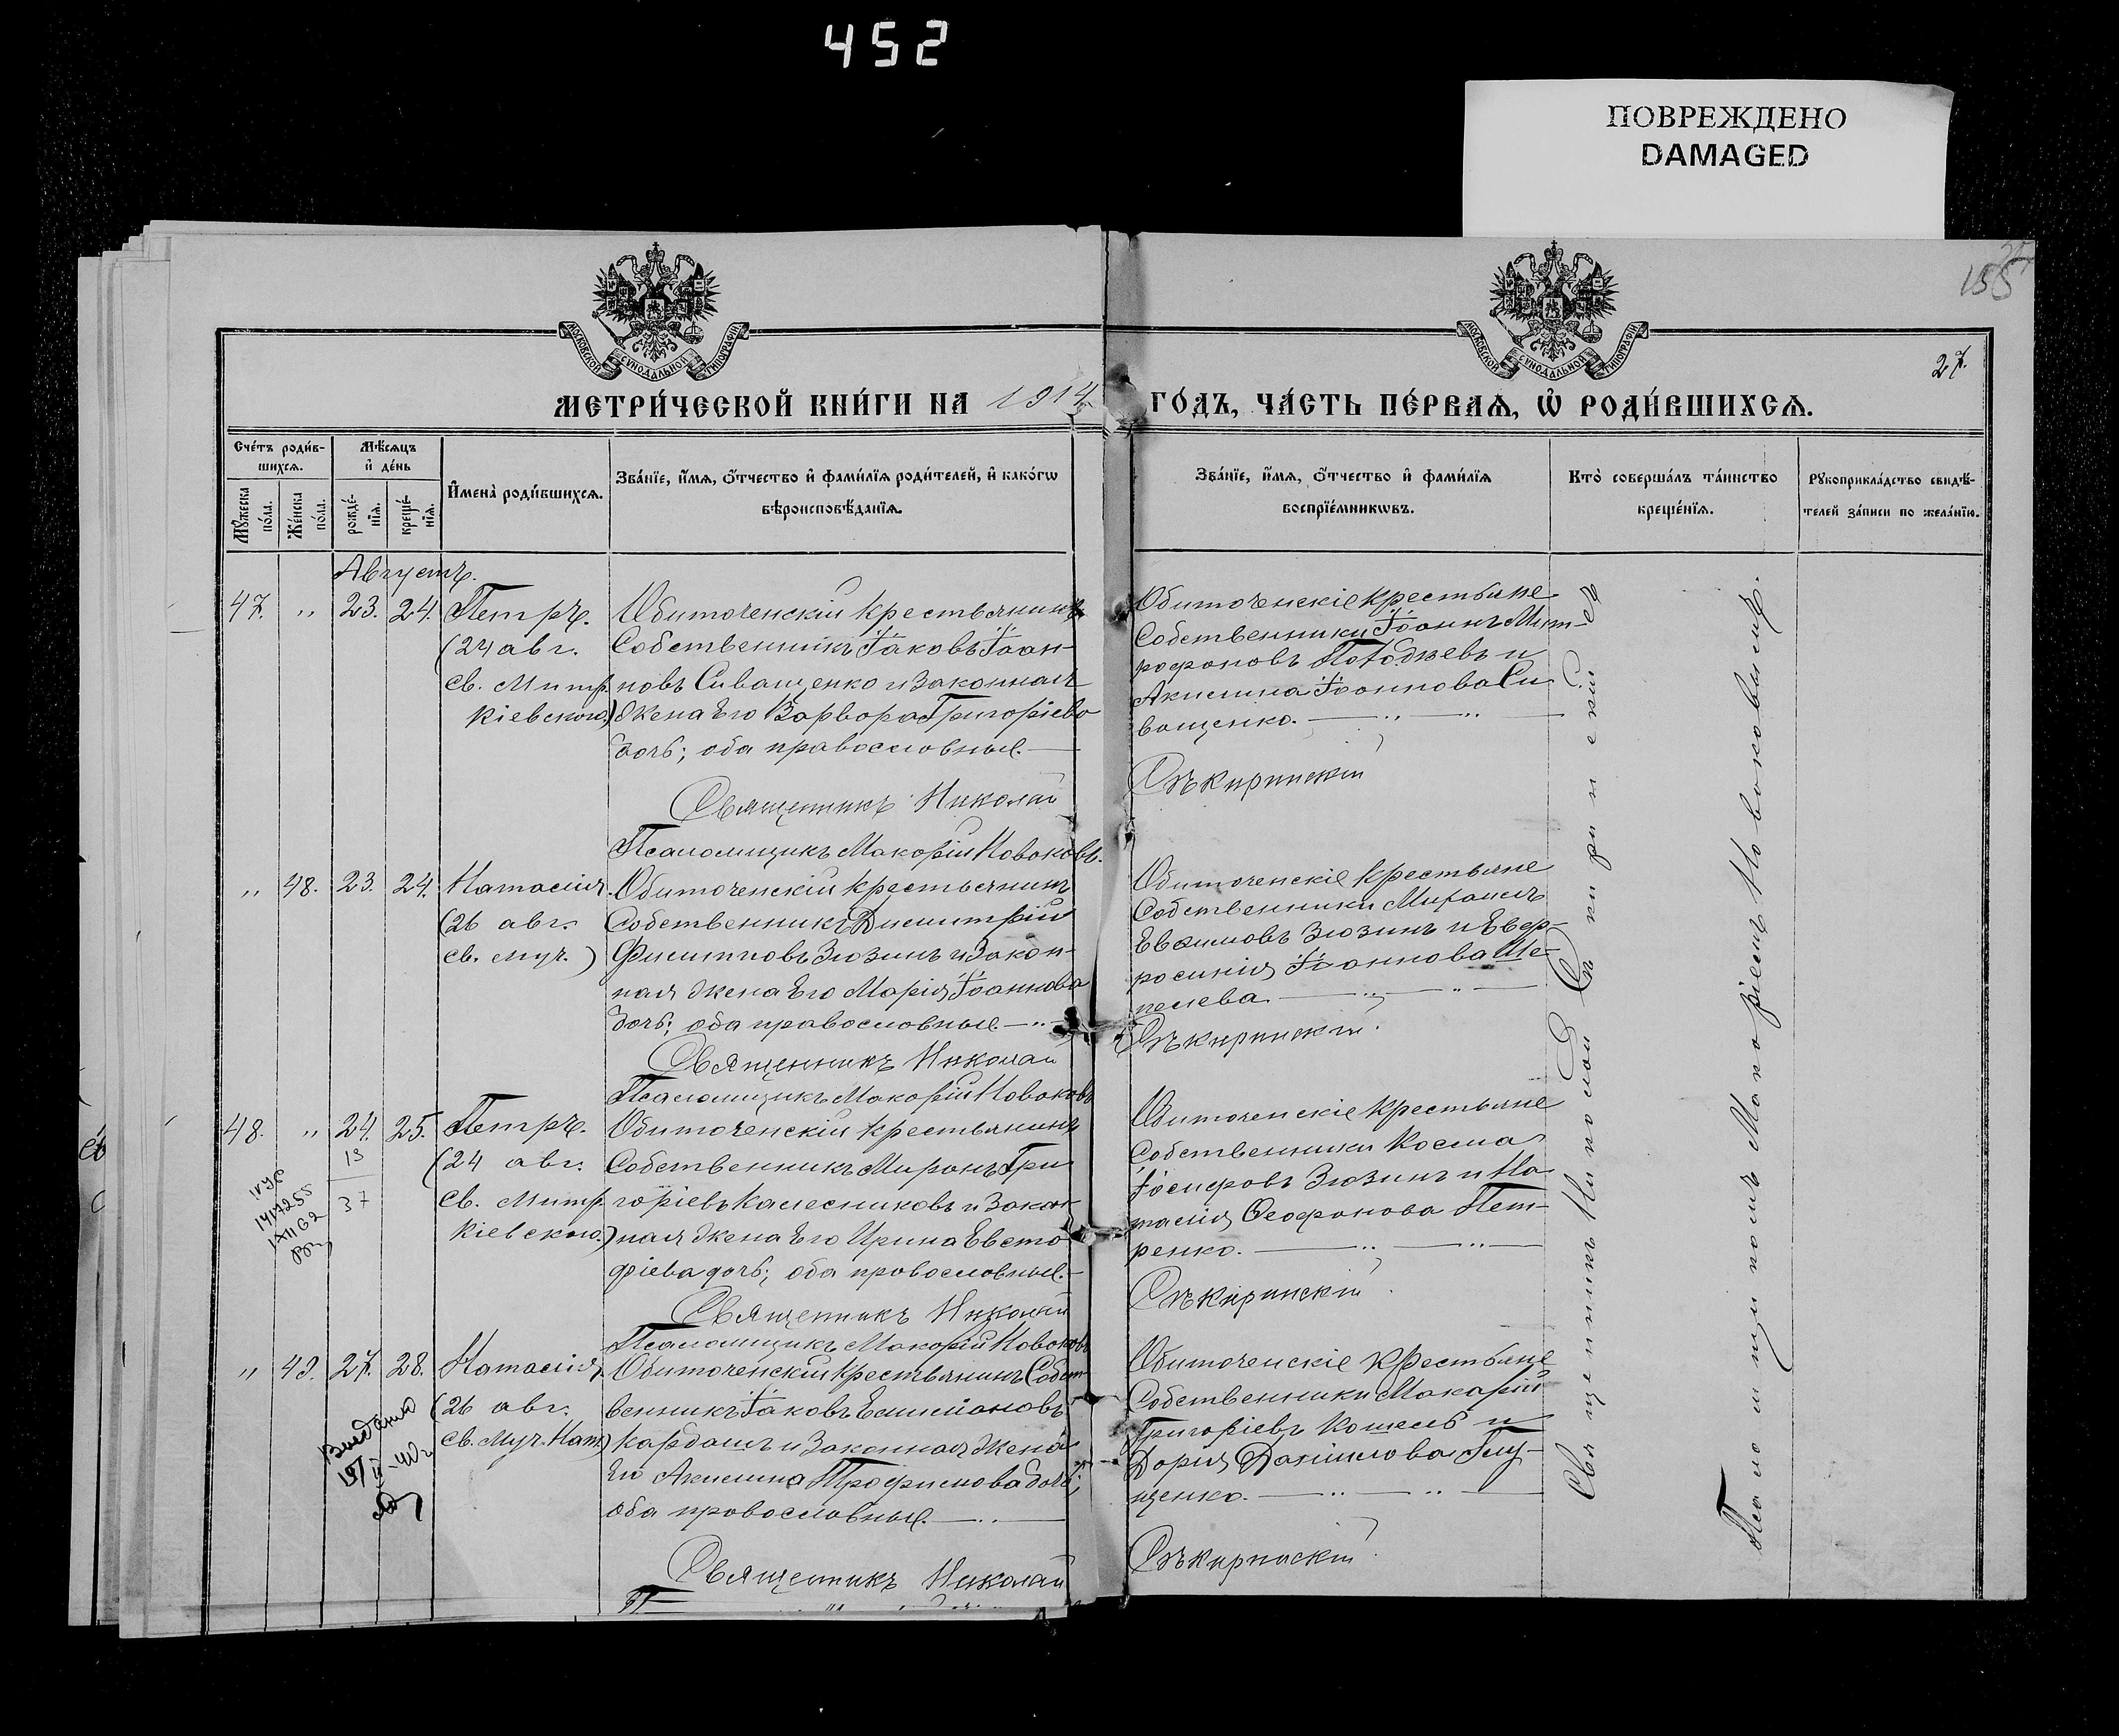 452
ПОВРЕЖДЕНО
DAMAGED
155
27.
МОСКОВСКОЙ СѴНОДАЛЬНОЙ ТИПОГРАФІИ
МОСКОВСКОЙ СѴНОДАЛЬНОЙ ТИПОГРАФІИ
МЕТРИ́ЧЕСКОЙ КНИ́ГИ НА 1914 ГО́ДЪ, ЧА́СТЬ ПЕ́РВАѦ, Ѡ҆ РОДИ́ВШИХСѦ.
Сче́тъ роди́в-
шихсѧ.
Мꙋ́жеска
по́ла.
Же́нска
по́ла.
Мѣ́сѧцъ
и҆ де́нь
рожде́-
нїѧ.
креще́-
нїѧ.
И҆мена̀ роди́вшихсѧ.
Зва́нїе, и҆́мѧ, ѻ҆́тчество и҆ фами́лїѧ роди́телей, и҆ како́гѡ
вѣроисповѣ́данїѧ.
Зва́нїе, и҆́мѧ, ѻ҆́тчество и҆ фами́лїѧ
воспрїе́мникѡвъ.
Кто̀ соверша́лъ та́инство
креще́нїѧ.
Рꙋкоприкла́дство свидѣ́-
телей за́писи по жела́нїю.
Августъ.
47. " 23. 24. Петръ.
(24 авг.
св. Митр.
Кіевского.)
Обиточенскій крестьянинъ
Собственникъ Іаковъ Іоан-
новъ Сиващенко и Законная
жена Его Варвора Григоріева
дочь; оба православные.
Священникъ Николай
Псаломщикъ Макорій Новаковъ.
Обиточенскіе крестьяне
Собственники Іоаннъ Мит-
рофоновъ и
Акилина Іоаннова Си
ващенко.
Сѣкиринскій
" 48. 23. 24. Наталія.
(26 авг.
св. муч.)
Обиточенскій крестьянинъ
Собственникъ Димитрій
Филиповъ Зюзинъ и Закон-
ная жена Его Марія Іоаннова
дочь; оба православные
Священникъ Николай
Псаломщикъ Макорій Новаковъ
Обиточенскіе крестьяне
Собственники Михаилъ
Евѳимовъ Зюзинъ и Евф-
росинія Іоаннова Ше-
пелева.
Сѣкиринскій.
48. " 24. 25. Петръ.
19
37
(24 авг.
св. Митр.
Кіевского.)
Обиточенскій крестьянинъ
Собственникъ Миронъ Гри
горіевъ Калесниковъ и Закон-
ная жена Его Ирина Евста
фіева дочь; оба православные.
Священникъ Николай
Псаломщикъ Макорій Новаковъ
Обиточенскіе крестьяне
Собственники Косма
Іосифовъ Зюзинъ и На
талія Ѳеофонова Пет-
ренко.
Сѣкиринскій
" 49. 27. 28. Наталія.
(26 авг.
св. муч. Нат.)
Обиточенскій крестьянинъ Собст
венникъ Іаковъ Емиліановъ
Кардашъ и Законная жена
Его Акилина Трофимова дочь;
оба православные.
Священникъ Николай
Обиточенскіе крестьяне
Собственники Макарій
Григоріевъ Кошель и
Дарія Даніилова Глу-
щенко.
Сѣкиринскій.
Священникъ Николай Сѣкиринскій
Псаломщикомъ Макоріемъ Новаковымъ.